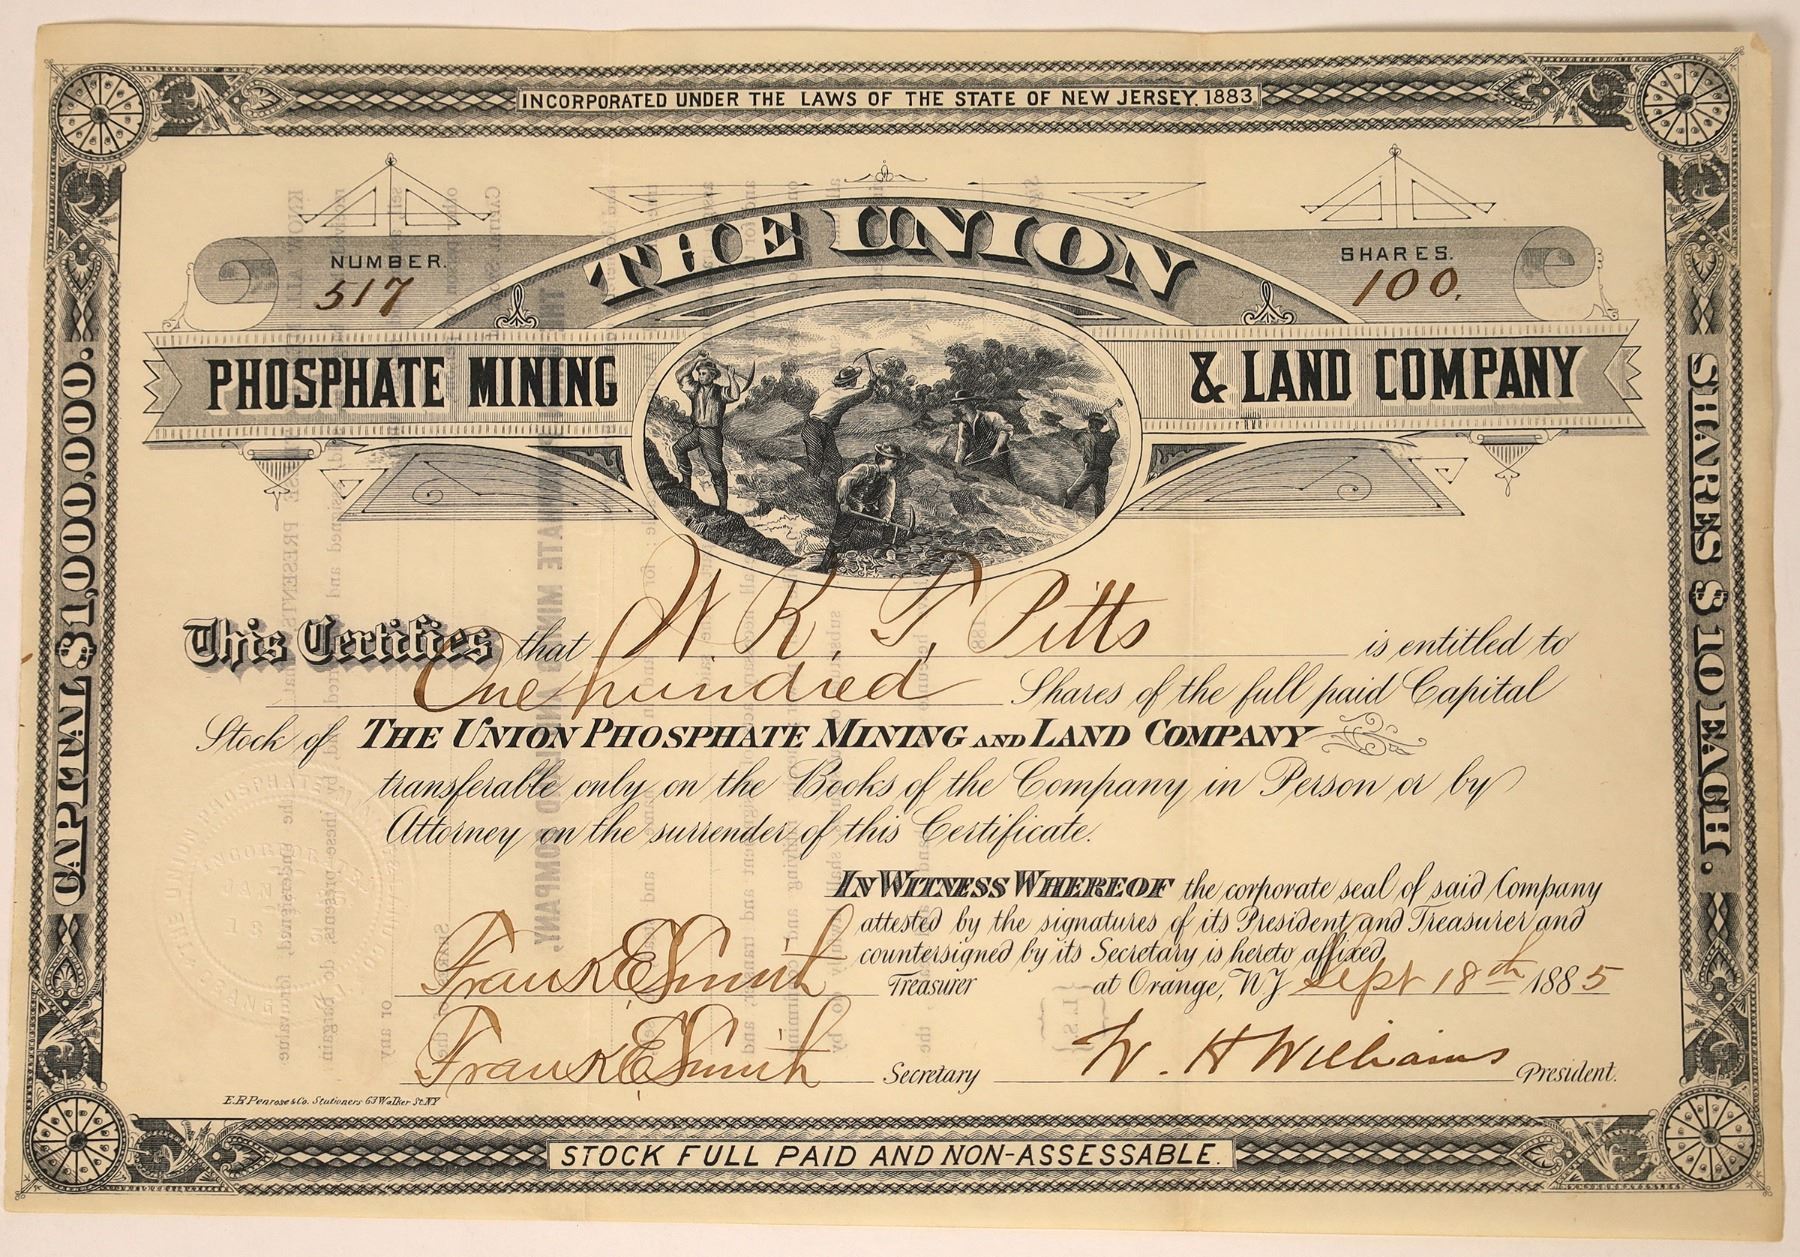 INCORPORATED UNDER THE LAWS OF THE STATE OF NEW JERSEY, 1883.
NUMBER.
517
SHARES.
100.
THE UNION
PHOSPHATE MINING & LAND COMPANY
CAPITAL $1,000,000.
SHARES $10 EACH.
This Certifies that W. R. T. Pitts is entitled to
One hundred Shares of the full paid Capital
Stock of THE UNION PHOSPHATE MINING AND LAND COMPANY
transferable only on the Books of the Company in Person or by
Attorney on the surrender of this Certificate.
IN WITNESS WHEREOF the corporate seal of said Company
attested by the signatures of its President and Treasurer and
countersigned by its Secretary is hereto affixed
Frank E Smith Treasurer at Orange, NJ Sept 18th 1885
Frank E Smith Secretary W. H Williams President.
E.B. Penrose & Co. Stationers 63 Walker St. NY
STOCK FULL PAID AND NON-ASSESSABLE.
THE UNION PHOSPHATE MINING
INCORPORATED
JAN